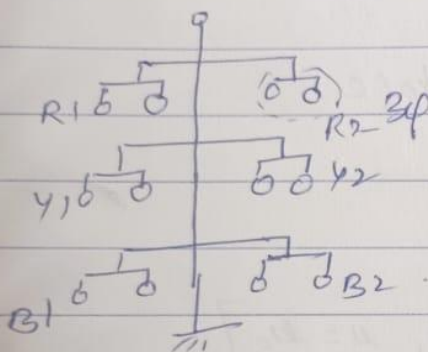 R1
R2 3φ
Y1 Y2
B1 B2